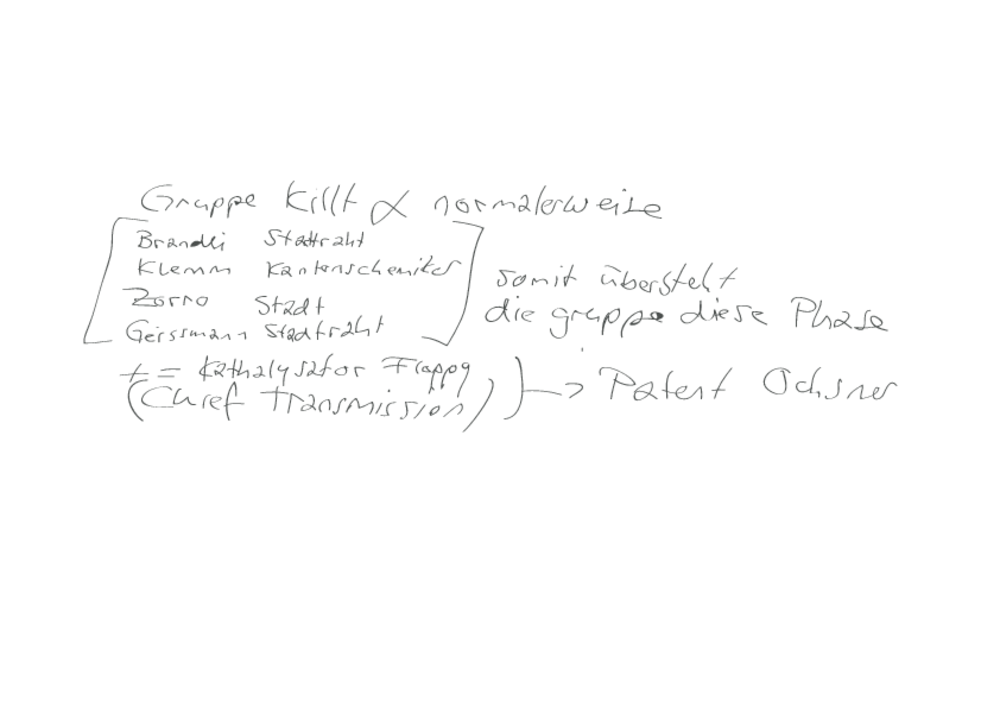 Gruppe Killt α normalerweise
Brandli Stadtraht
Klemm Kantonschemiker
Zorro Stadt
Geissmann Stadtraht
somit übersteht
die gruppe diese Phase
+ = Kathalysator Flappy
(Churef Transmission) -> Patent Ochsner